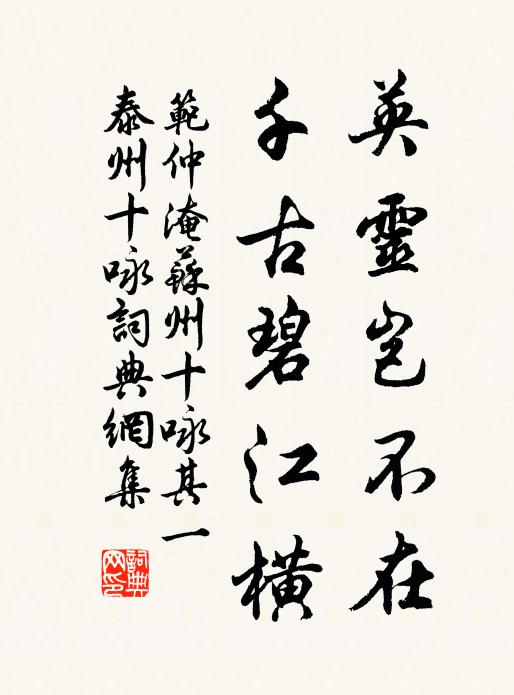 英靈豈不在
千古碧江橫
範仲淹蘇州十咏其一
泰州十咏詞典網集
詞典網印